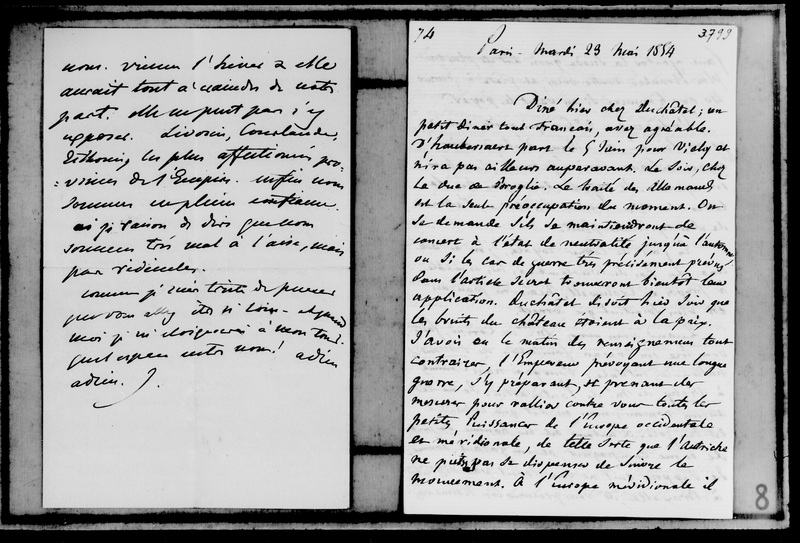 nous. vienne l'hiver & elle
aurait tout à craindre de notre
part. elle ne peut pas s'y
exposer. Livonie, Courlande,
Esthonie, les plus affectionnés pro-
=vinces de l'Empire. enfin nous
sommes en pleine confiance
ai je raison de dire que nous
sommes très mal à l'aise, mais
pas ridicules.
comme je suis triste de penser
que vous allez être si loin. et quand
moi je m'éloignerai à mon tour.
quel espace entre nous! adieu
adieu. J.
74
3799
Paris. Mardi 23 Mai 1854
Diné hier chez Duchâtel; un
petit diner tout français, assez agréable.
d'haubersaert part le 5 Juin pour Vichy et
n'ira pas ailleurs auparavant. Le soir, chez
le duc de Broglie. Le traité des Allemands
est la seule préoccupation du moment. On
se demande s'ils se maintiendront de
concert à l'état de neutralité jusqu'à l'automne
ou si les cas de guerre très précisément prévus
dans l'article secret trouveront bientôt leur
application. Duchâtel disoit hier soir que
les bruits du château étoient à la paix.
J'avois eu le matin des renseignemens tout
contraires, l'Empereur prévoyant une longue
guerre, s'y préparant, et prenant des
mesures pour rallier contre vous toutes les
petites Puissances de l'Europe occidentale
et méridionale, de telle sorte que l'Autriche
ne puisse pas se dispenser de suivre le
mouvement. À l'Europe méridionale il
8